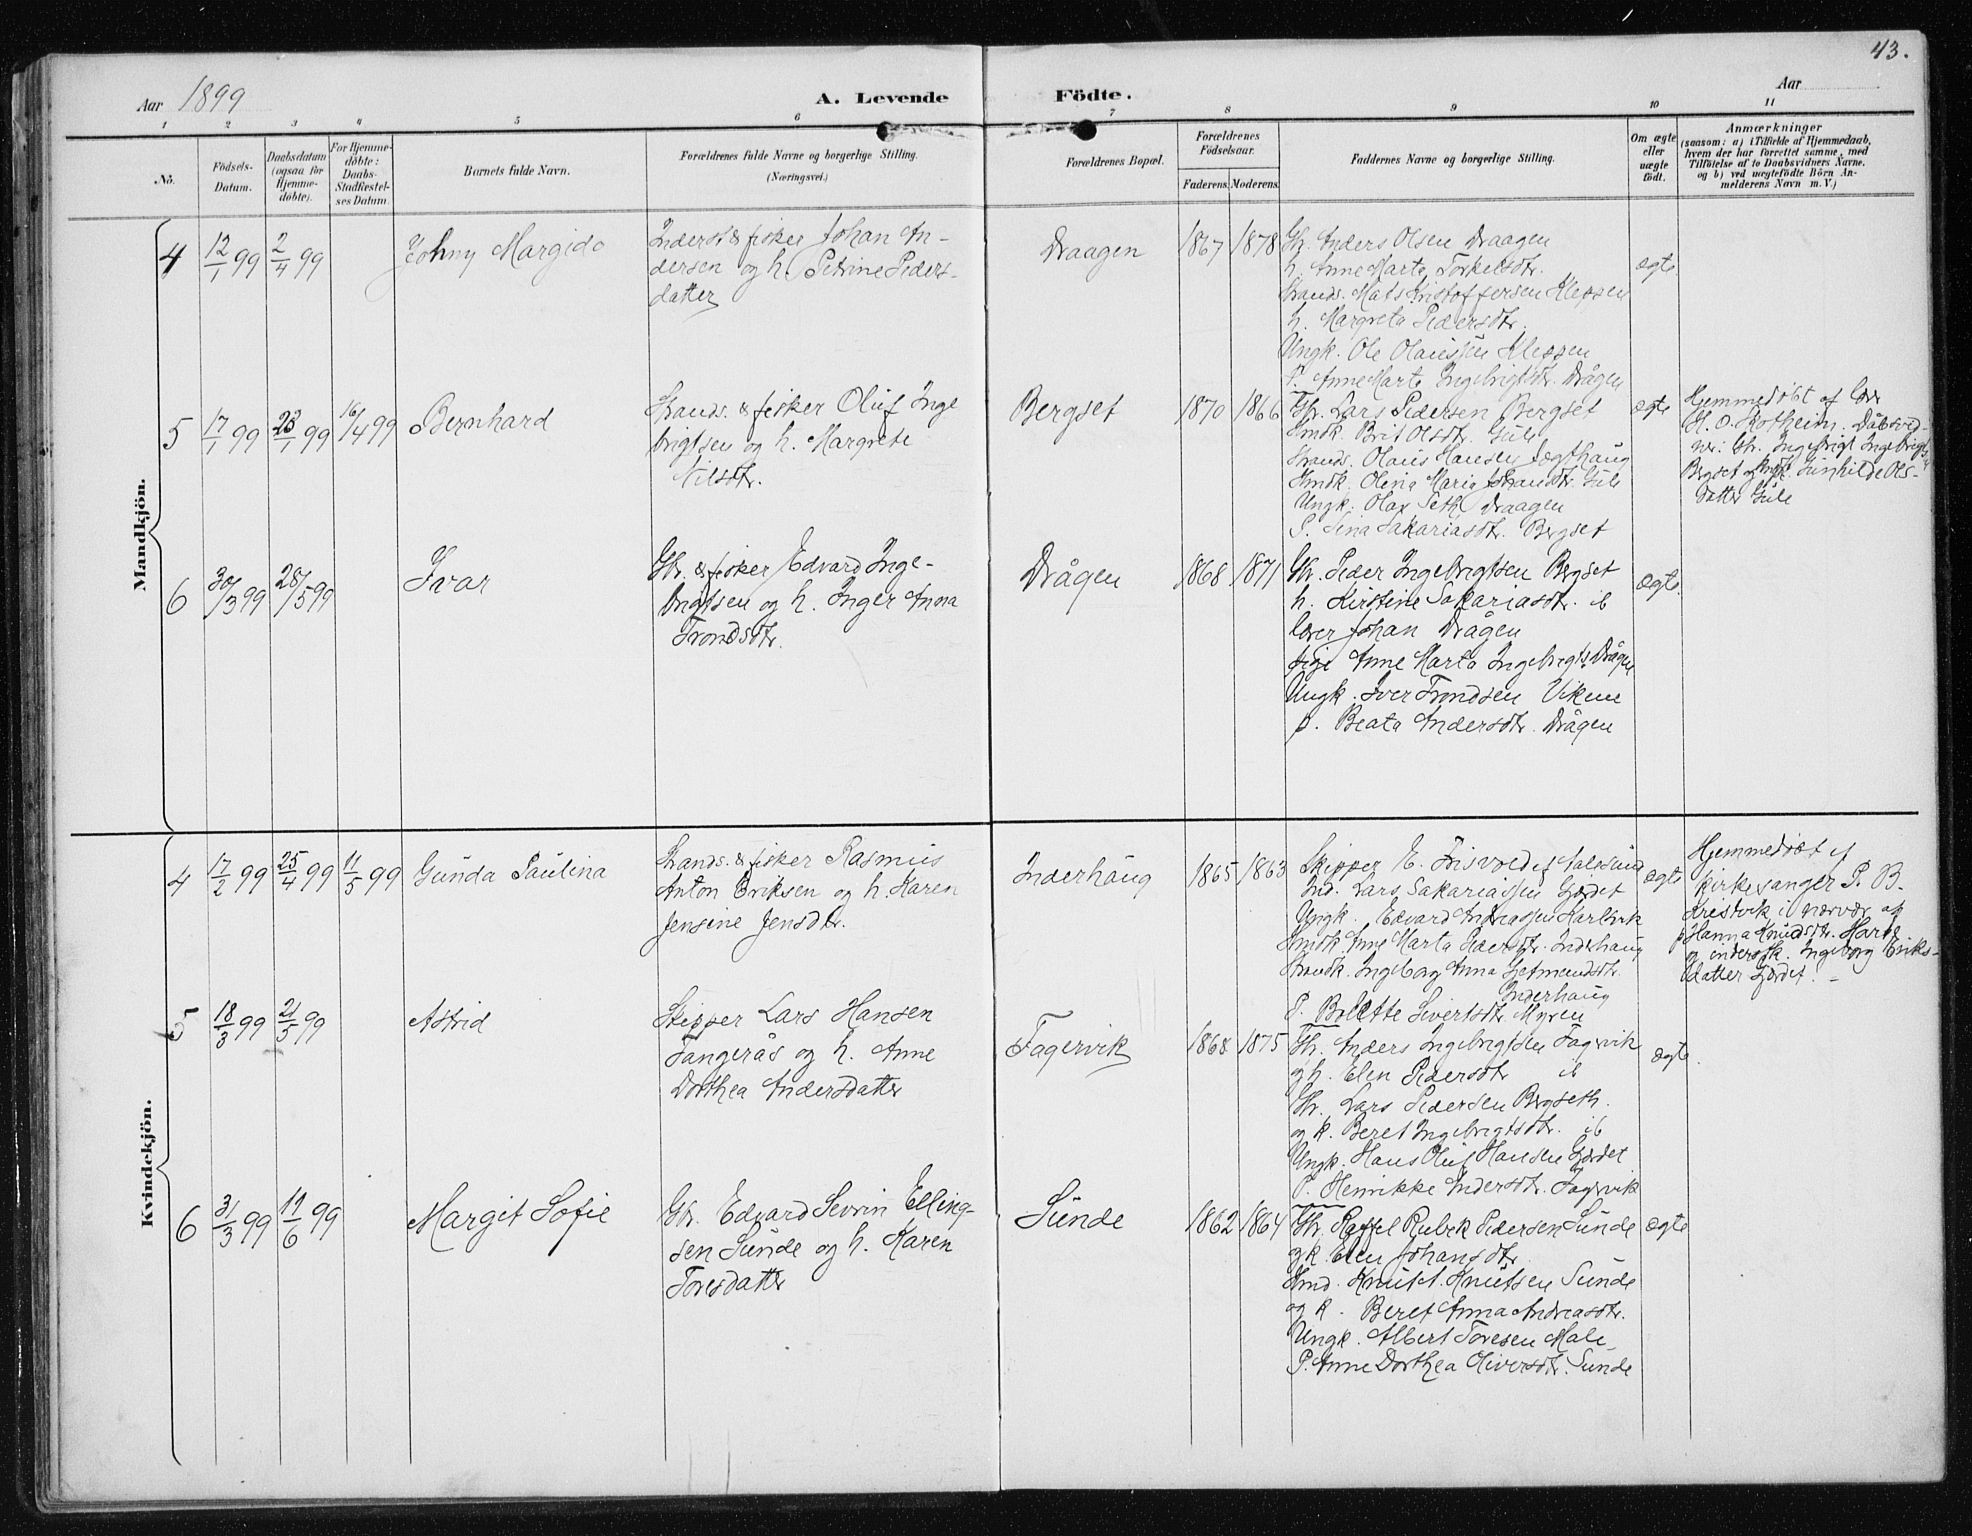 43.
Aar 1899
A. Levende Födte.
Aar
1 2 3 4 5 6 7 8 9 10 11
No.
Födsels-
Datum.
Daabsdatum
(ogsaa for
Hjemme-
döbte).
For Hjemme-
döbte:
Daabs-
Stadfæstel-
ses Datum.
Barnets fulde Navn.
Forældrenes fulde Navne og borgerlige Stilling.
(Næringsvei.)
Forældrenes Bopæl.
Forældrenes
Födselsaar.
Faderens. Moderens.
Faddernes Navne og borgerlige Stilling.
Om ægte
eller
uægte
födt.
Anmærkninger
(saasom: a) i Tilfælde af Hjemmedaab,
hvem der har forrettet samme, med
Tilföielse af to Daabsvidners Navne,
og b) ved uægtefödte Börn An-
melderens Navn m. V.)
Mandkjön.
4
12/1 99
2/4 99
Johny Margido
Inderst & fisker Johan An-
dersen og h. Petrine Peders-
datter
Draagen
1867
1878
Gbr. Anders Olsen Draagen
h. Anne Marta Torkelsdtr.
Strands. Mats Kristoffersen Kleppen
h. Margreta Pedersdtr.
Ungk. Ole Olaussen Kleppen
P. Anne Marta Ingebrigtsdtr. Drågen
ægte
5
17/1 99
23/1 99
16/4 99
Bernhard
Strands. & fisker Oluf Inge
brigtsen og h. Margrete
Nilsdtr.
Bergset
1870
1866
Gbr. Lars Pedersen Bergset
Brit Olsdtr. Gule
Strands. Olaus Hansen
Olina Maria Johansdtr. Gule
Ungk. Olav Seth Draagen
P. Lina Sakariasdtr. Bergset
ægte
Hjemmedøbt af lær
H. O. Rotheim. Dåbsvid-
ner: Gbr. Ingebrigt Ingebrigts
Bergset og Gunhilde Ols-
datter Gule
6
30/3 99
28/5 99
Ivar
Gbr. & fisker Edvard Inge-
brigtsen og h. Inger Anna
Trondsdtr.
Drågen
1868
1871
Gbr. Peder Ingebrigtsen Bergset
h. Kirstine Sakariasdtr. ib
lærer Johan Drågen
pige Anne Marta Ingebrigts. Drågen
Ungk. Iver Trondsen Vikene
p. Beata Andersdtr. Drågen
ægte.
Kvindekjön.
4
17/2 99
25/4 99
11/5 99
Gunda Paulina
Strands. & fisker Rasmus
Anton Eriksen og h. Karen
Jensine Jensdtr.
Inderhaug
1865
1863
Skipper E. Frisvold af Aalesund
Ind. Lars Sakariassen Gjerdet
Ungk. Edvard Andreassen Harlvik
Anne Marta Pedersdtr. Inderhaug
Ingeborg Anna Getmundsdtr.
Inderhaug
P. Bolette Sivertsdtr. Myren
ægte
Hjemmedøbt af
kirkesanger P. B.
Krestvik i nærvær af
p Hanna Knudsdtr.
og Ingeborg Eriks-
datter Gjerdet. –
5
18/3 99
21/5 99
Astrid
Skipper Lars Hansen
Tangerås og h. Anne
Dorthea Andersdatter
Fagervik
1868
1875
Gbr. Anders Ingebrigtsen Fagervik
og h. Elen Pedersdtr ib
Gbr. Lars Pedersen Bergseth.
og k. Beret Ingebrigtsdtr. ib
Ungk. Hans Oluf Hansen Gjerdet
P. Henrikke Andersdtr. Fagervik
ægte.
6
31/3 99
11/6 99
Margit Sofie
Gbr. Edvard Sevrin Elling-
sen Sunde og h. Karen
Toresdatter
Sunde
1862
1864
Gbr. Raffel Rubek Pedersen Sunde
og k. Elen Johansdtr.
Knut Knutsen Sunde
og k. Beret Anna Andreasdtr.
Ungk. Albert Toresen Male
P. Anne Dorthea Oliversdtr. Sunde
ægte